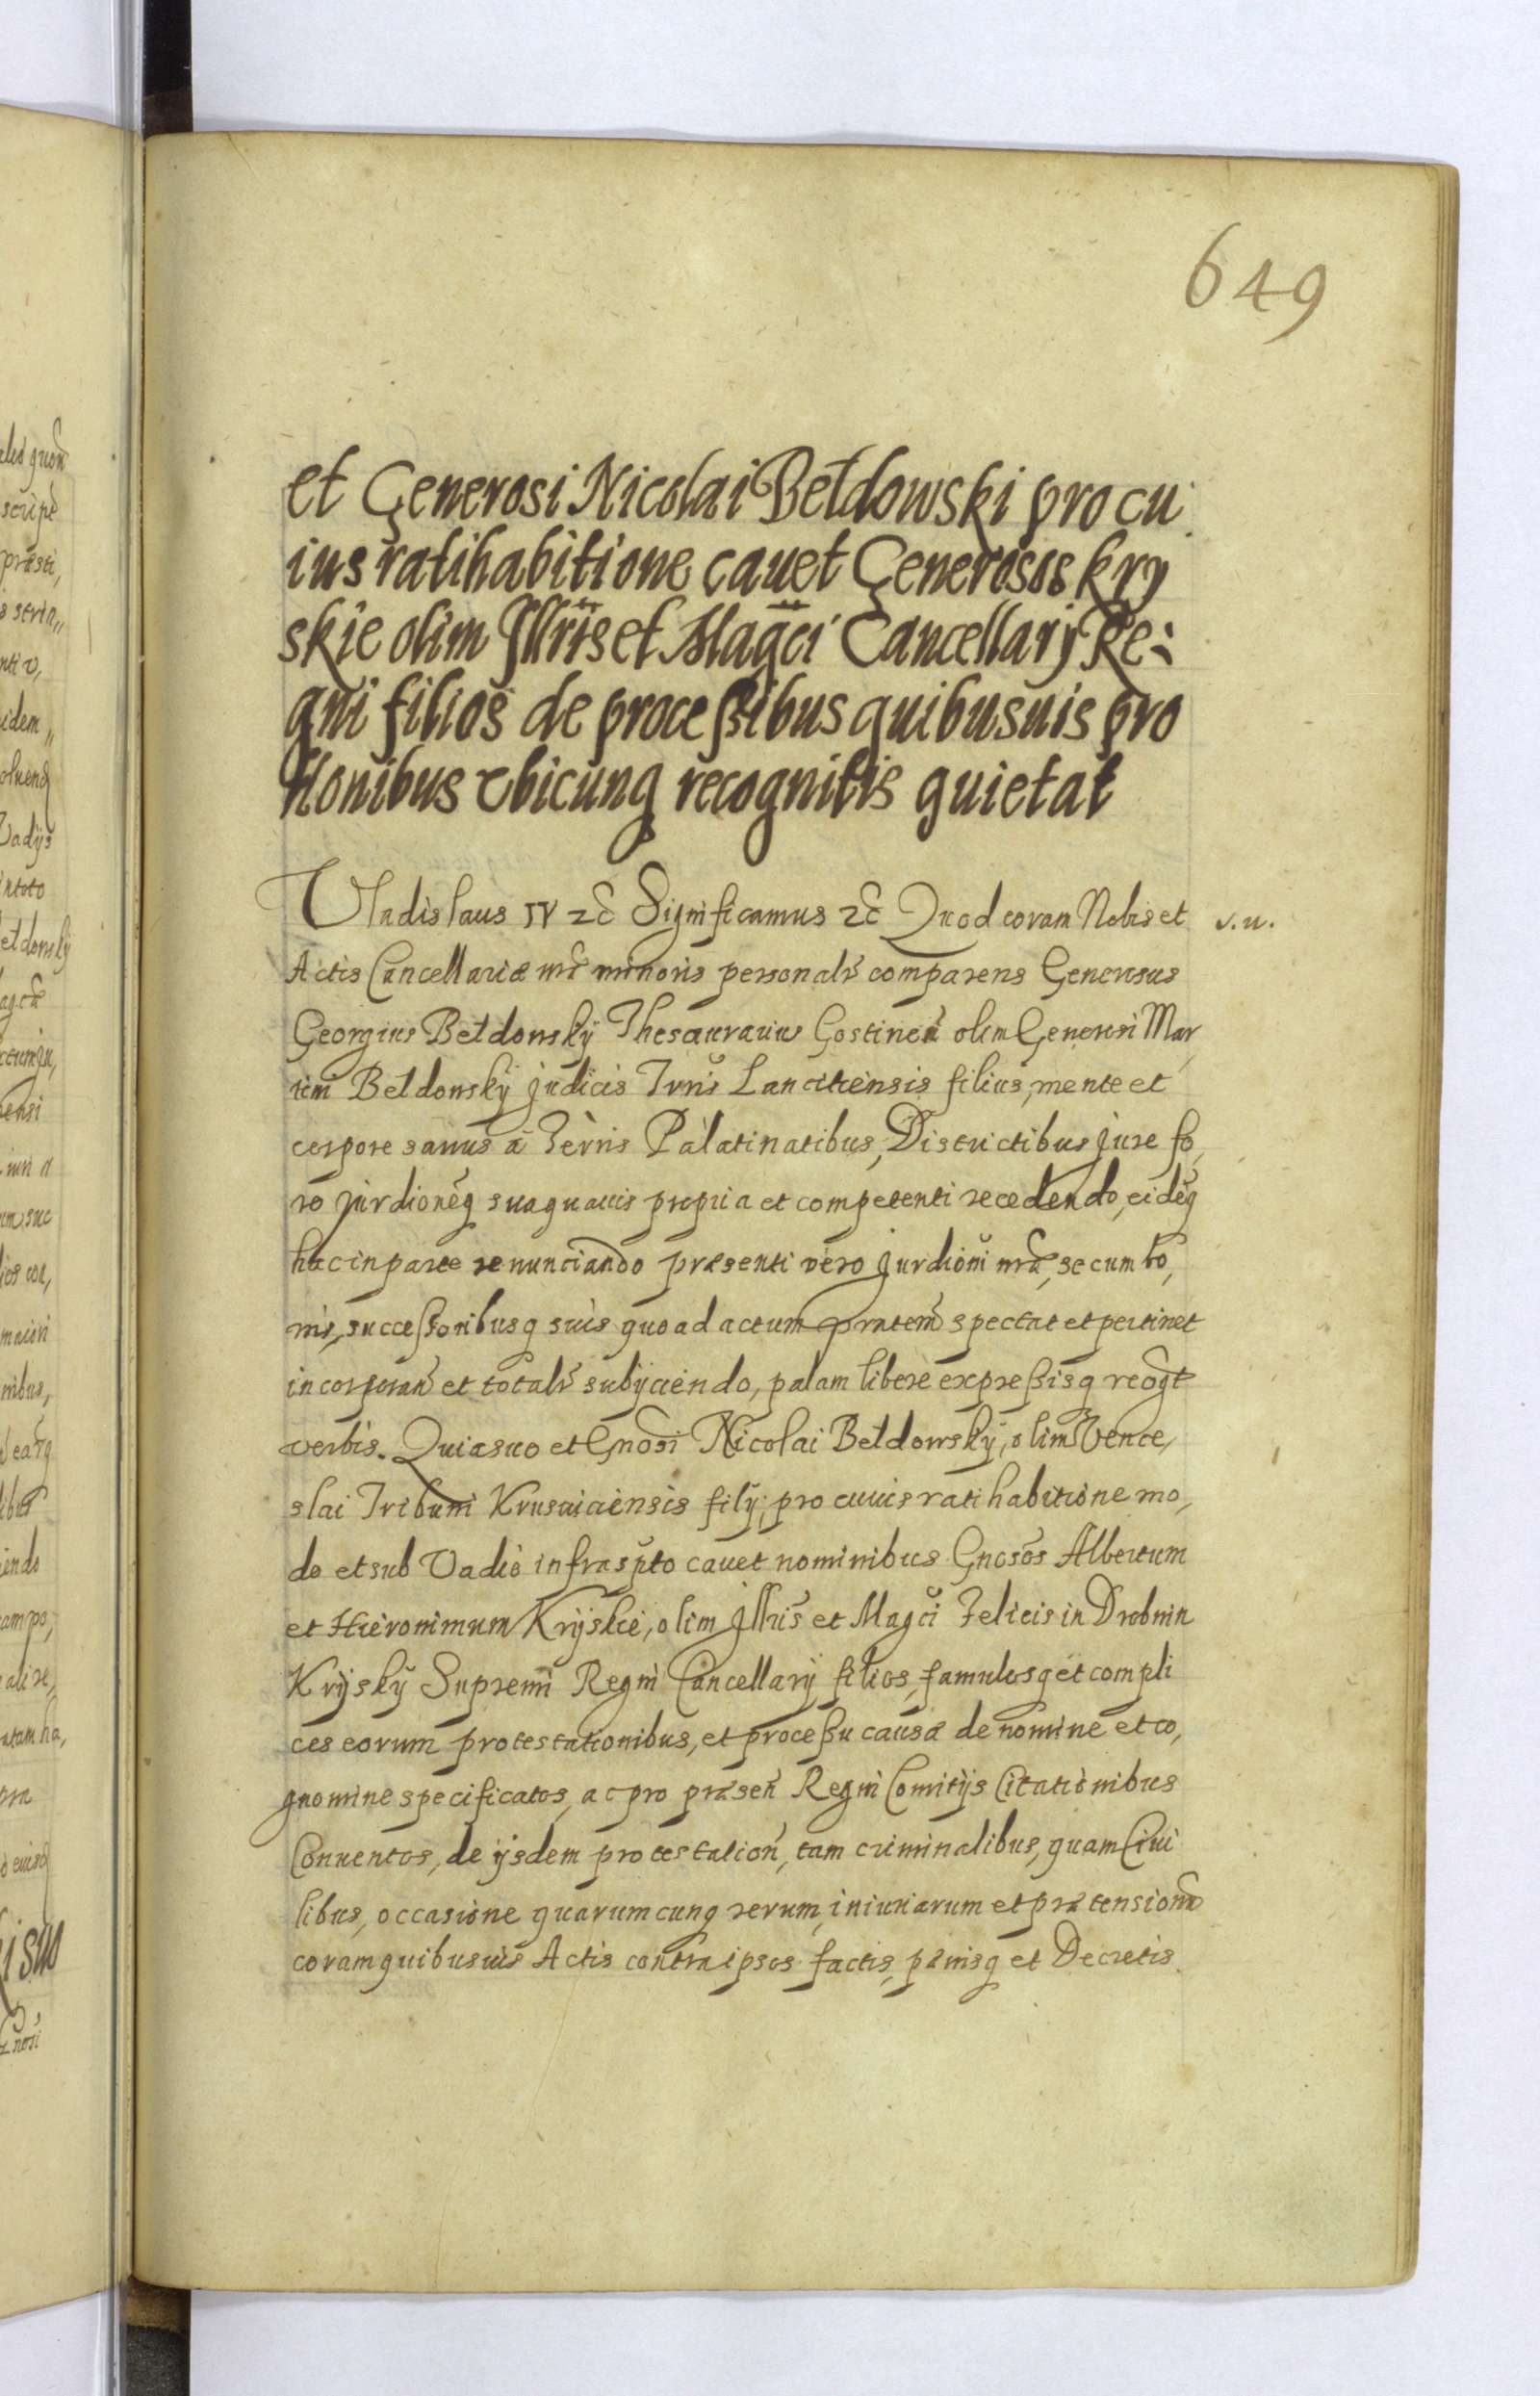 649
et Generosi Nicolai Bełdowski pro cu
ius ratihabitione cauet Generosos Kry
skie olim Illris et Magci Cancellarij Re:
gni filios de processibus quibusuis pro
nonibus vbicunq recognitis quietat
Vladislaus IV &c Significamus &c Quod coram Nobis et v. u.
Actis Cancellariæ nræ minoris personalr comparens Generosus
Georgius Bełdowskÿ Thesaurarius Gostinen olim Generosi Mar,
tim Bełdowskÿ judicis Trris Lancitiensis filius, mente et
corpore sanus a Terris Palatinatibus, Districtibus jure fo,
ro jurdioneq sua quauis propria et competenti recedendo, eideq
hac in parte renunciando præsenti vero jurdioni nræ, se cum bo,
nis, successoribusq suis quo ad actum prntem spectat et pertinet
incorporan et totalr subÿciendo, palam libere expressisq recogt
verbis. Quia suo et Gnosi Nicolai Bełdowskÿ, olim Vence,
slai Tribuni Krusuiciensis filÿ, pro cuius ratihabitione mo,
do et sub Vadio infrasrpto cauet nominibus Gnosos Albertum
et Hieronimum Krÿskie, olim Illris et Magci Felicis in Drobnin
Krÿskÿ Supremi Regni Cancellarÿ filios, famulosq et compli
ces eorum protestationibus, et processu causæ de nomine et co,
gnomine specificatos, ac pro præsen Regni Comitÿs Citationibus
Conuentos, de ÿsdem protestation, tam criminalibus, quam Ciui
libus, occasione quarumcunq rerum, iniuriarum et prætensionu
coram quibusuis Actis contra ipsos factis, pænisq et Decretis